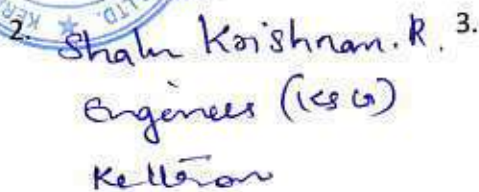 LTD. ★ KER
2. Shalu Krishnan. R. 3.
Engineer (KSG)
Keltron